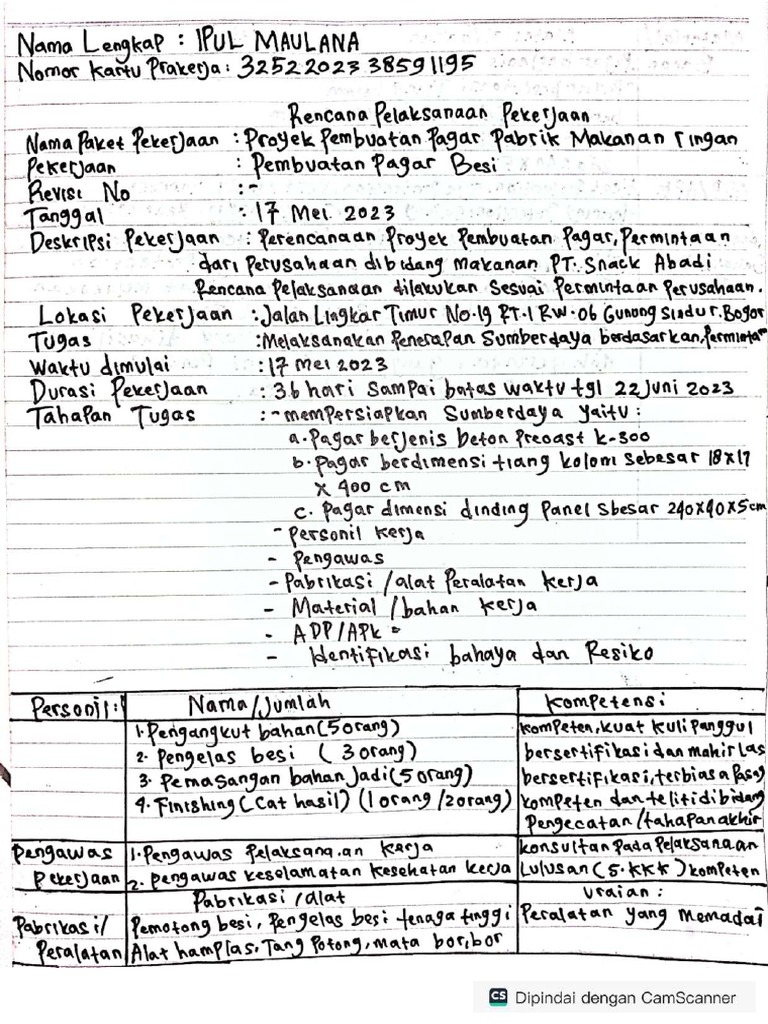 Nama Lengkap : IPUL MAULANA
Nomor Kartu Prakerja : 3252 2023 3859 1195
Rencana Pelaksanaan Pekerjaan
Nama Paket Pekerjaan : Proyek Pembuatan Pagar Pabrik Makanan Ringan
Pekerjaan : Pembuatan Pagar Besi
Revisi No : -
Tanggal : 17 Mei 2023
Deskripsi Pekerjaan : Perencanaan Proyek Pembuatan Pagar, Permintaan
dari Perusahaan dibidang Makanan PT. Snack Abadi
Rencana Pelaksanaan dilakukan Sesuai Permintaan Perusahaan.
Lokasi Pekerjaan : Jalan Lingkar Timur No.19 RT.1 RW.06 Gunung Sindur. Bogor
Tugas : Melaksanakan Penerapan Sumberdaya berdasarkan, Permintaan
Waktu dimulai : 17 Mei 2023
Durasi Pekerjaan : 36 hari Sampai batas waktu tgl 22 Juni 2023
Tahapan Tugas : - mempersiapkan Sumberdaya yaitu :
a. Pagar berjenis beton Precast K-300
b. Pagar berdimensi tiang kolom sebesar 18x17
x 400 cm
c. Pagar dimensi dinding Panel sbesar 240x40x5cm
- Personil Kerja
- Pengawas
- Pabrikasi / alat Peralatan kerja
- Material / bahan kerja
- ADP/APK
- Identifikasi bahaya dan Resiko
Personil : Nama/Jumlah Kompetensi
1. Pengangkut bahan (5 orang) Kompeten, kuat kuli panggul
2. Pengelas besi (3 orang) bersertifikasi dan mahir Las
3. Pemasangan bahan Jadi (5 orang) bersertifikasi, terbiasa Pasang
4. Finishing (Cat hasil) (1 orang / 2 orang) kompeten dan teliti dibidang
Pengecatan / tahapan akhir
Pengawas 1. Pengawas Pelaksanaan Kerja konsultan Pada Pelaksanaan
Pekerjaan 2. Pengawas keselamatan kesehatan kerja Lulusan (S.KKK) kompeten
Pabrikasi / alat Uraian :
Pabrikasi/ Pemotong besi, Pengelas besi tenaga tinggi Peralatan yang Memadai
Peralatan Alat hamplas, Tang Potong, mata bor, bor
CS Dipindai dengan CamScanner